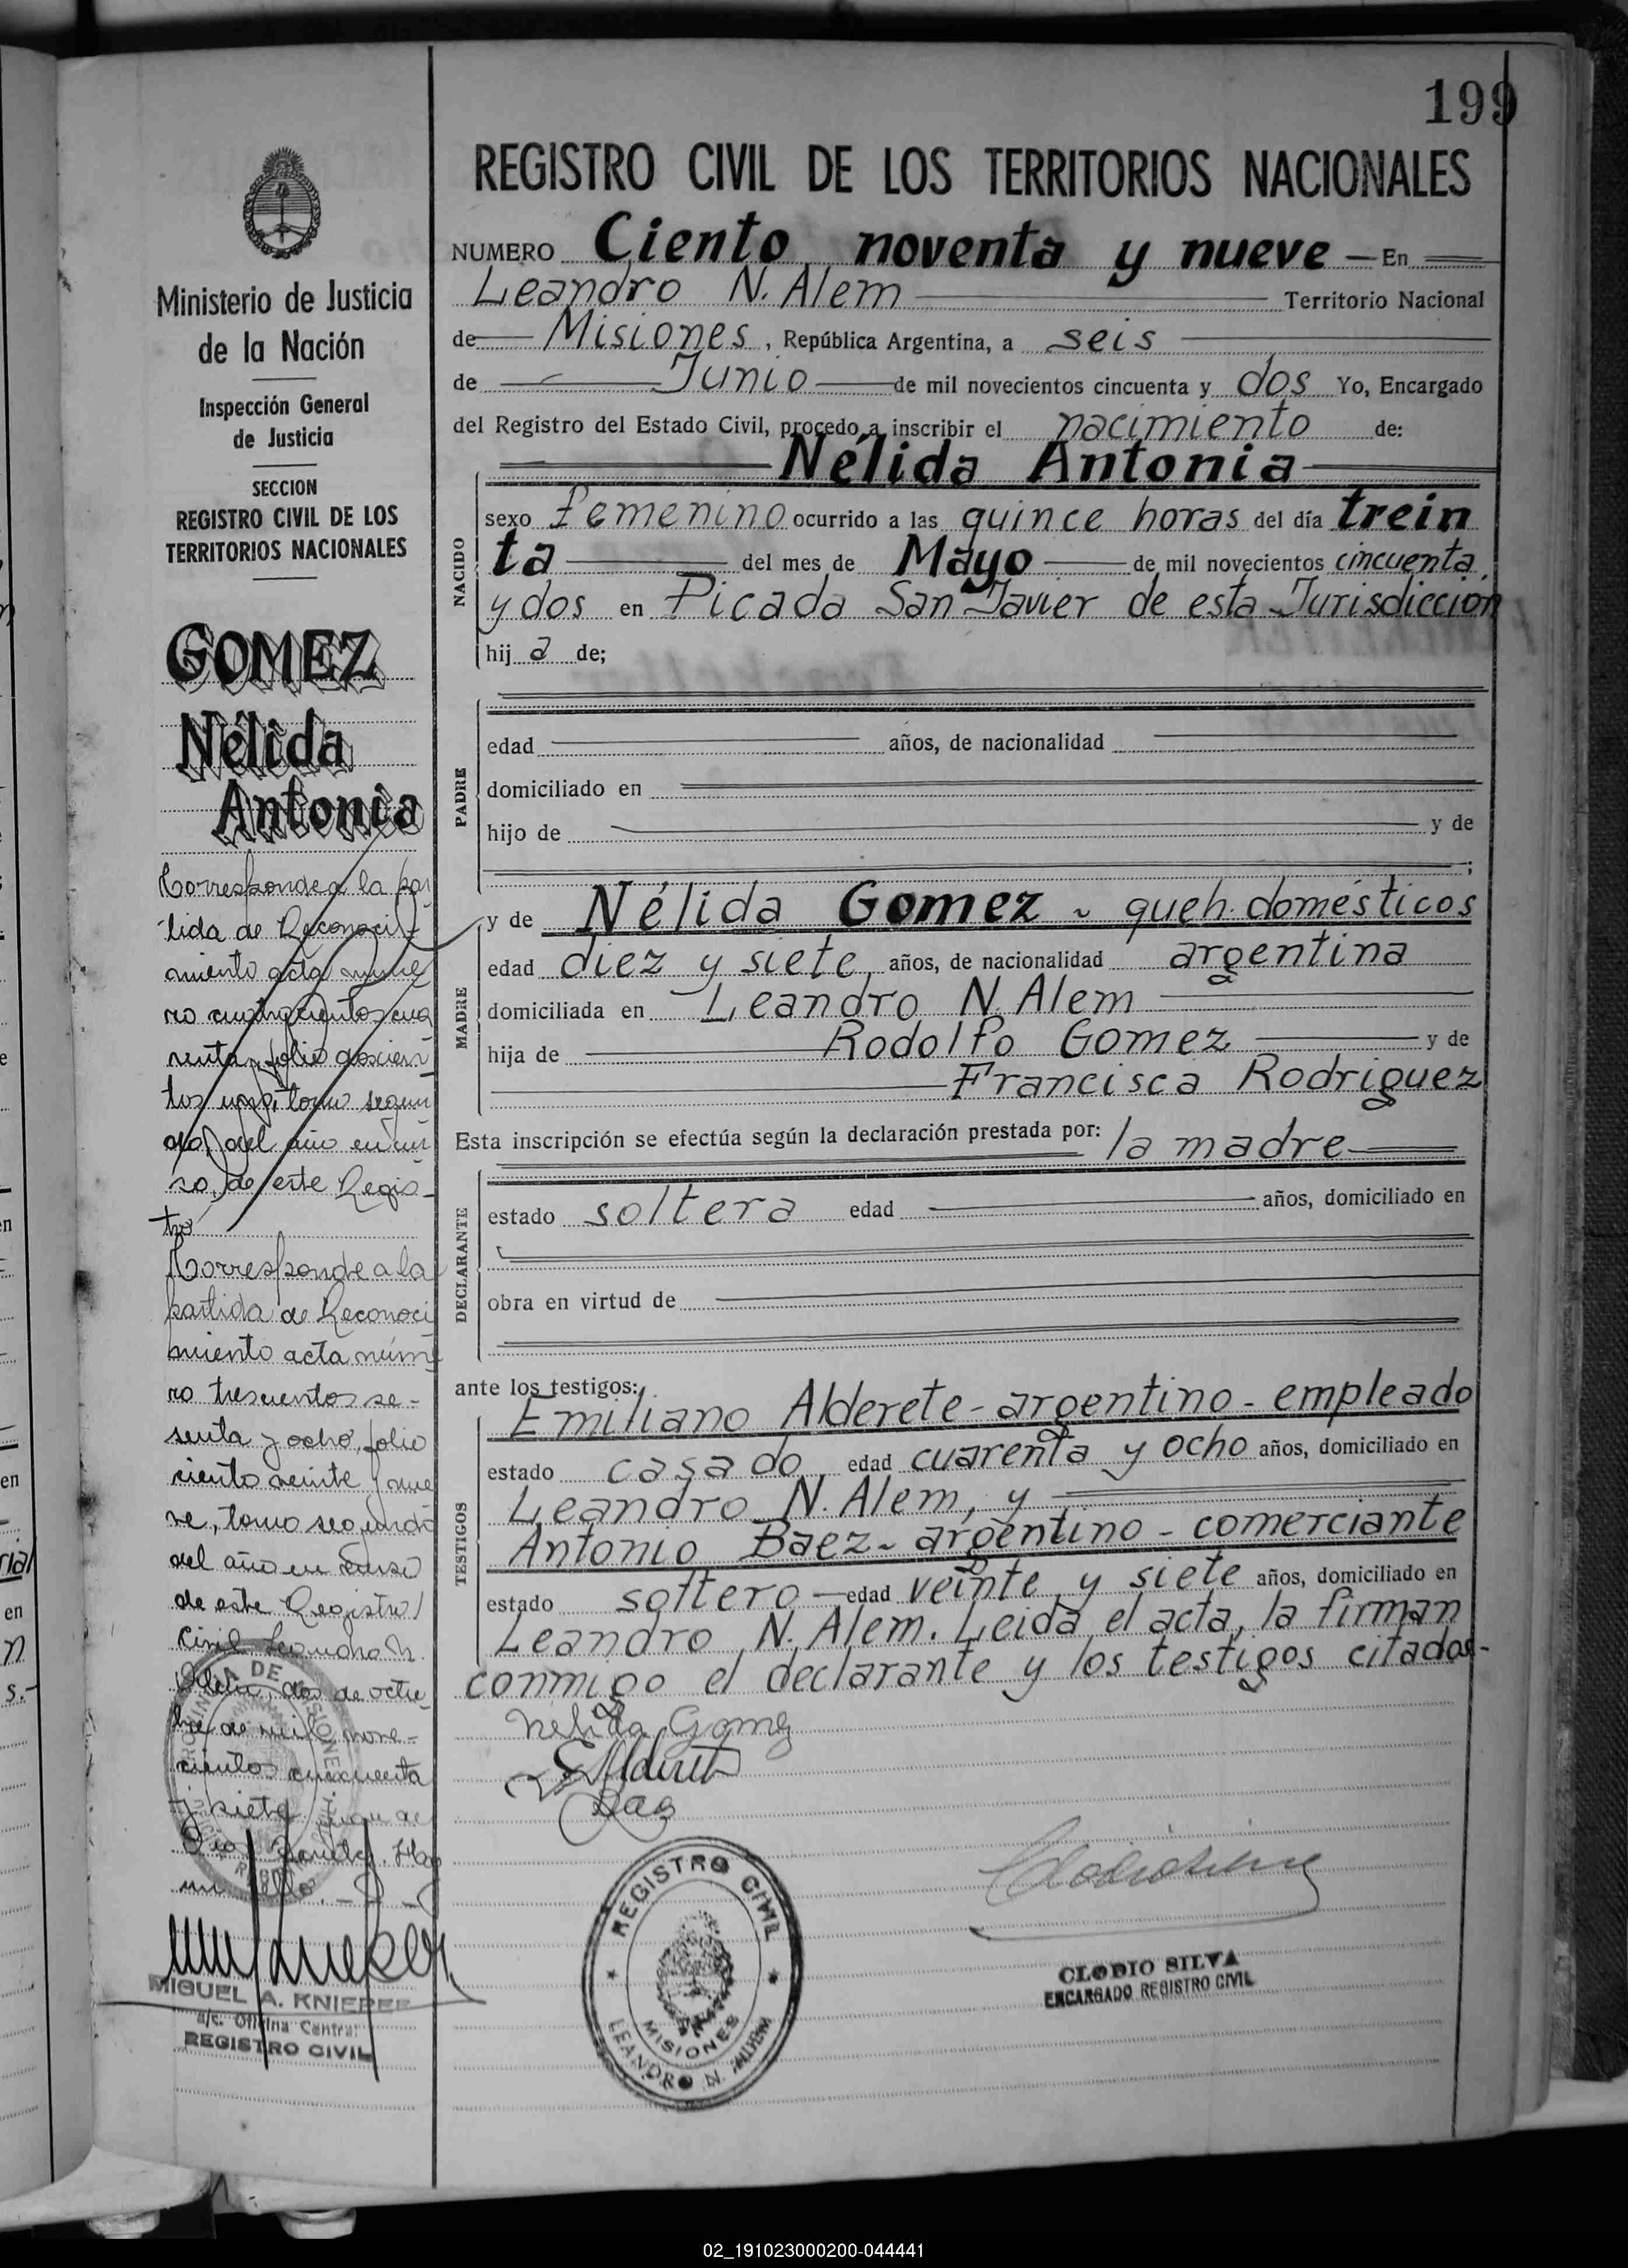 199
REGISTRO CIVIL DE LOS TERRITORIOS NACIONALES
NUMERO Ciento noventa y nueve — En
Leandro N. Alem Territorio Nacional
de Misiones, República Argentina, a seis
de Junio de mil novecientos cincuenta y dos Yo, Encargado
del Registro del Estado Civil, procedo a inscribir el nacimiento de:
Nélida Antonia
NACIDO
sexo Femenino ocurrido a las quince horas del día trein
ta del mes de Mayo de mil novecientos cincuenta
y dos en Picada San Javier de esta Jurisdiccion
hij a de;
PADRE
edad años, de nacionalidad
domiciliado en
hijo de y de
;
MADRE
y de Nélida Gomez - queh. domésticos
edad diez y siete años, de nacionalidad argentina
domiciliada en Leandro N. Alem
hija de Rodolfo Gomez y de
Francisca Rodriguez
Esta inscripción se efectúa según la declaración prestada por: la madre
DECLARANTE
estado soltera edad años, domiciliado en
obra en virtud de
ante los testigos:
TESTIGOS
Emiliano Alderete - argentino - empleado
estado casado edad cuarenta y ocho años, domiciliado en
Leandro N. Alem, y
Antonio Baez - argentino - comerciante
estado soltero — edad veinte y siete años, domiciliado en
Leandro N. Alem. Leida el acta, la firman
conmigo el declarante y los testigos citados-
Nelida Gomez
EAlderete
Baez
REGISTRO CIVIL
MISIONES
LEANDRO N. ALEM
CLODIO SILVA
ENCARGADO REGISTRO CIVIL
Ministerio de Justicia
de la Nación
Inspección General
de Justicia
SECCION
REGISTRO CIVIL DE LOS
TERRITORIOS NACIONALES
GOMEZ
Nélida
Antonia
Corresponde a la par
tida de Reconoci-
miento acta núme
ro cuatrocientos cua
renta, folio doscien
tos uno, tomo segun
do, del año en cur
so, de este Regis-
tro
Corresponde a la
partida de Reconoci
miento acta núme
ro trescientos se-
senta y ocho, folio
ciento veinte y nue
ve, tomo segundo
del año en curso
de este Registro
Civil Leandro N.
Alem, dos de octu
bre de mil nove-
cientos cincuenta
y siete
sello
MIGUEL A. KNIEPER
a/c. Oficina Central
REGISTRO CIVIL
02_191023000200-044441